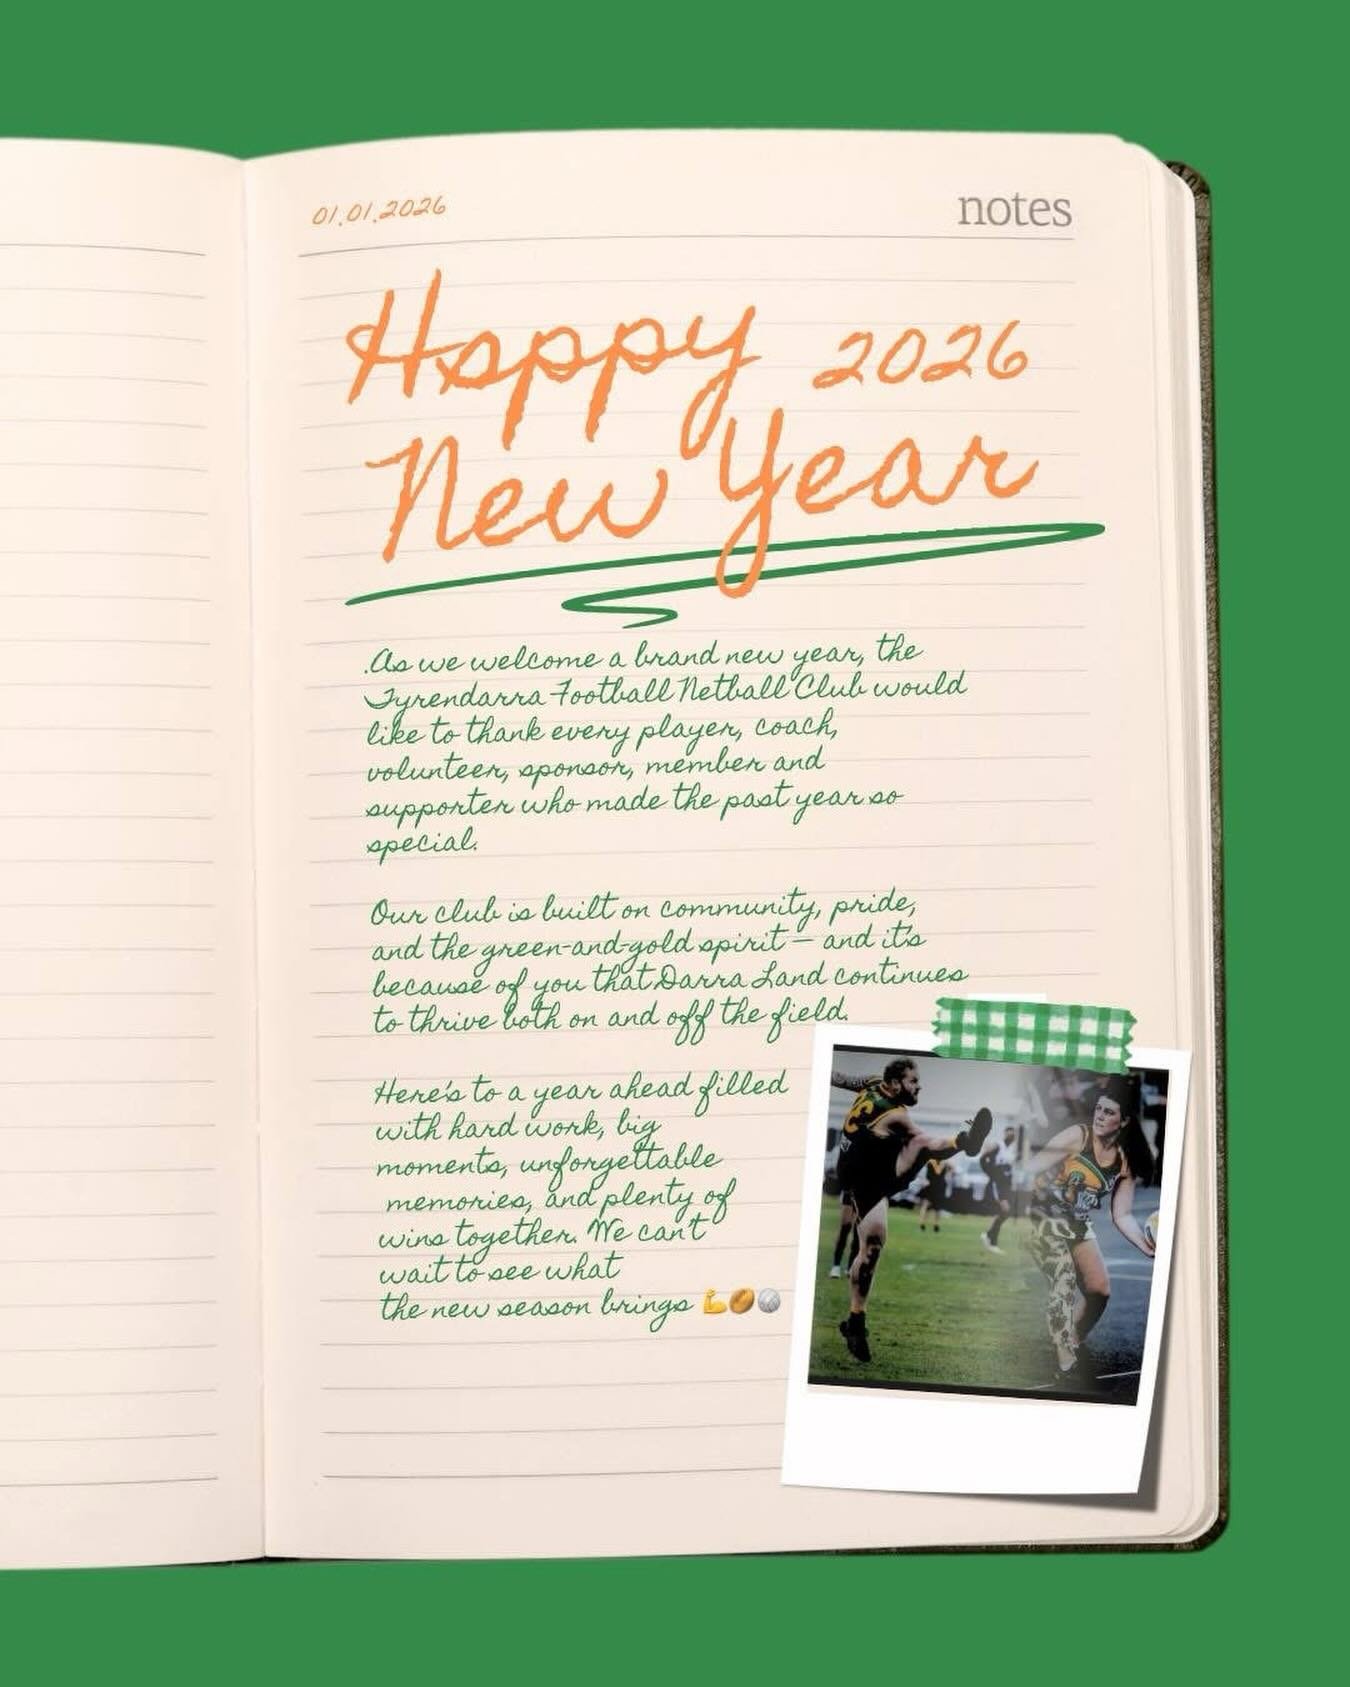 01.01.2026
notes
Happy 2026
New Year
.As we welcome a brand new year, the
Tyrendarra Football Netball Club would
like to thank every player, coach,
volunteer, sponsor, member and
supporter who made the past year so
special.
Our club is built on community, pride,
and the green-and-gold spirit — and it's
because of you that Darra Land continues
to thrive both on and off the field.
Here's to a year ahead filled
with hard work, big
moments, unforgettable
memories, and plenty of
wins together. We can't
wait to see what
the new season brings 💪🏉🏐